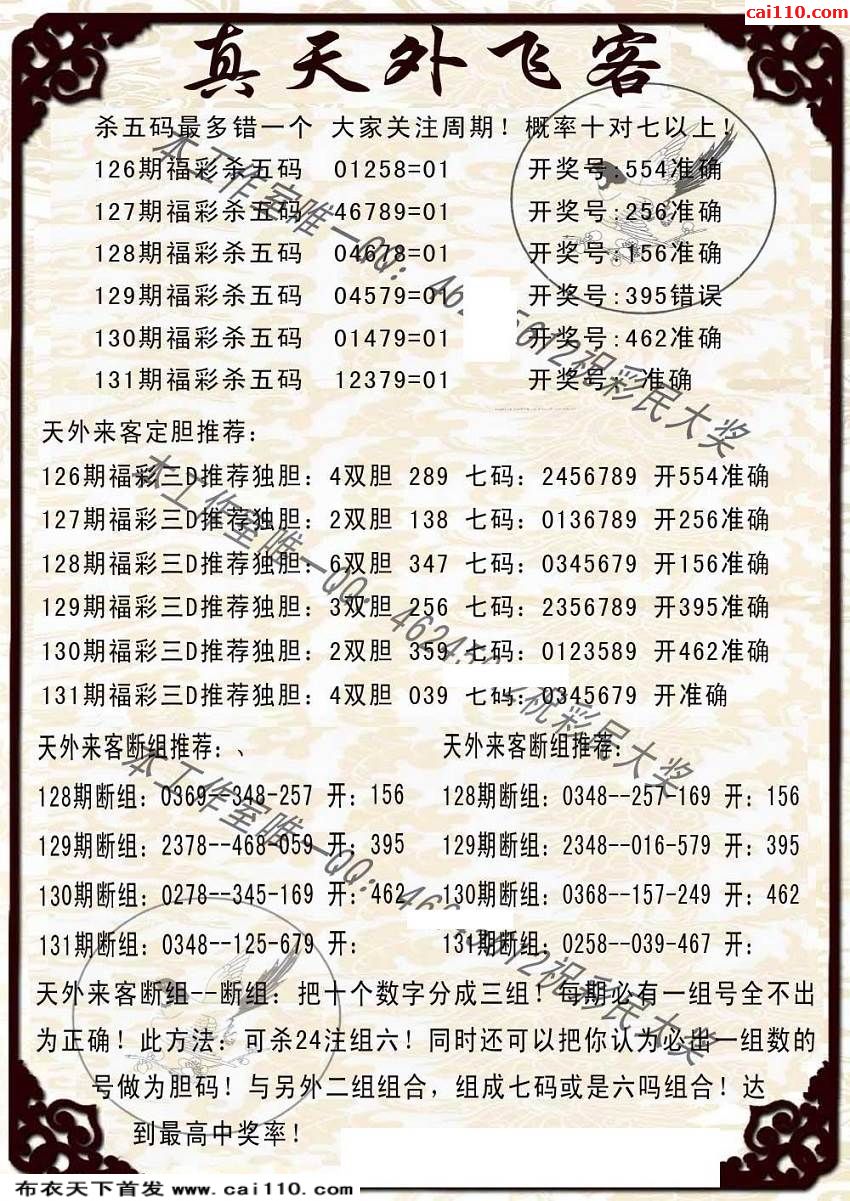 cai110.com
真天外飞客
杀五码最多错一个 大家关注周期！概率十对七以上！
126期福彩杀五码 01258=01 开奖号:554准确
127期福彩杀五码 46789=01 开奖号:256准确
128期福彩杀五码 04678=01 开奖号:156准确
129期福彩杀五码 04579=01 开奖号:395错误
130期福彩杀五码 01479=01 开奖号:462准确
131期福彩杀五码 12379=01 开奖号: 准确
天外来客定胆推荐：
126期福彩三D推荐独胆：4双胆 289 七码：2456789 开554准确
127期福彩三D推荐独胆：2双胆 138 七码：0136789 开256准确
128期福彩三D推荐独胆：6双胆 347 七码：0345679 开156准确
129期福彩三D推荐独胆：3双胆 256 七码：2356789 开395准确
130期福彩三D推荐独胆：2双胆 359 七码：0123589 开462准确
131期福彩三D推荐独胆：4双胆 039 七码：0345679 开准确
天外来客断组推荐：、 天外来客断组推荐：
128期断组：0369--348-257 开：156 128期断组：0348--257-169 开：156
129期断组：2378--468-059 开：395 129期断组：2348--016-579 开：395
130期断组：0278--345-169 开：462 130期断组：0368--157-249 开：462
131期断组：0348--125-679 开： 131期断组：0258--039-467 开：
天外来客断组--断组：把十个数字分成三组！每期必有一组号全不出
为正确！此方法：可杀24注组六！同时还可以把你认为必出一组数的
号做为胆码！与另外二组组合，组成七码或是六吗组合！达
到最高中奖率！
布衣天下首发 www.cai110.com